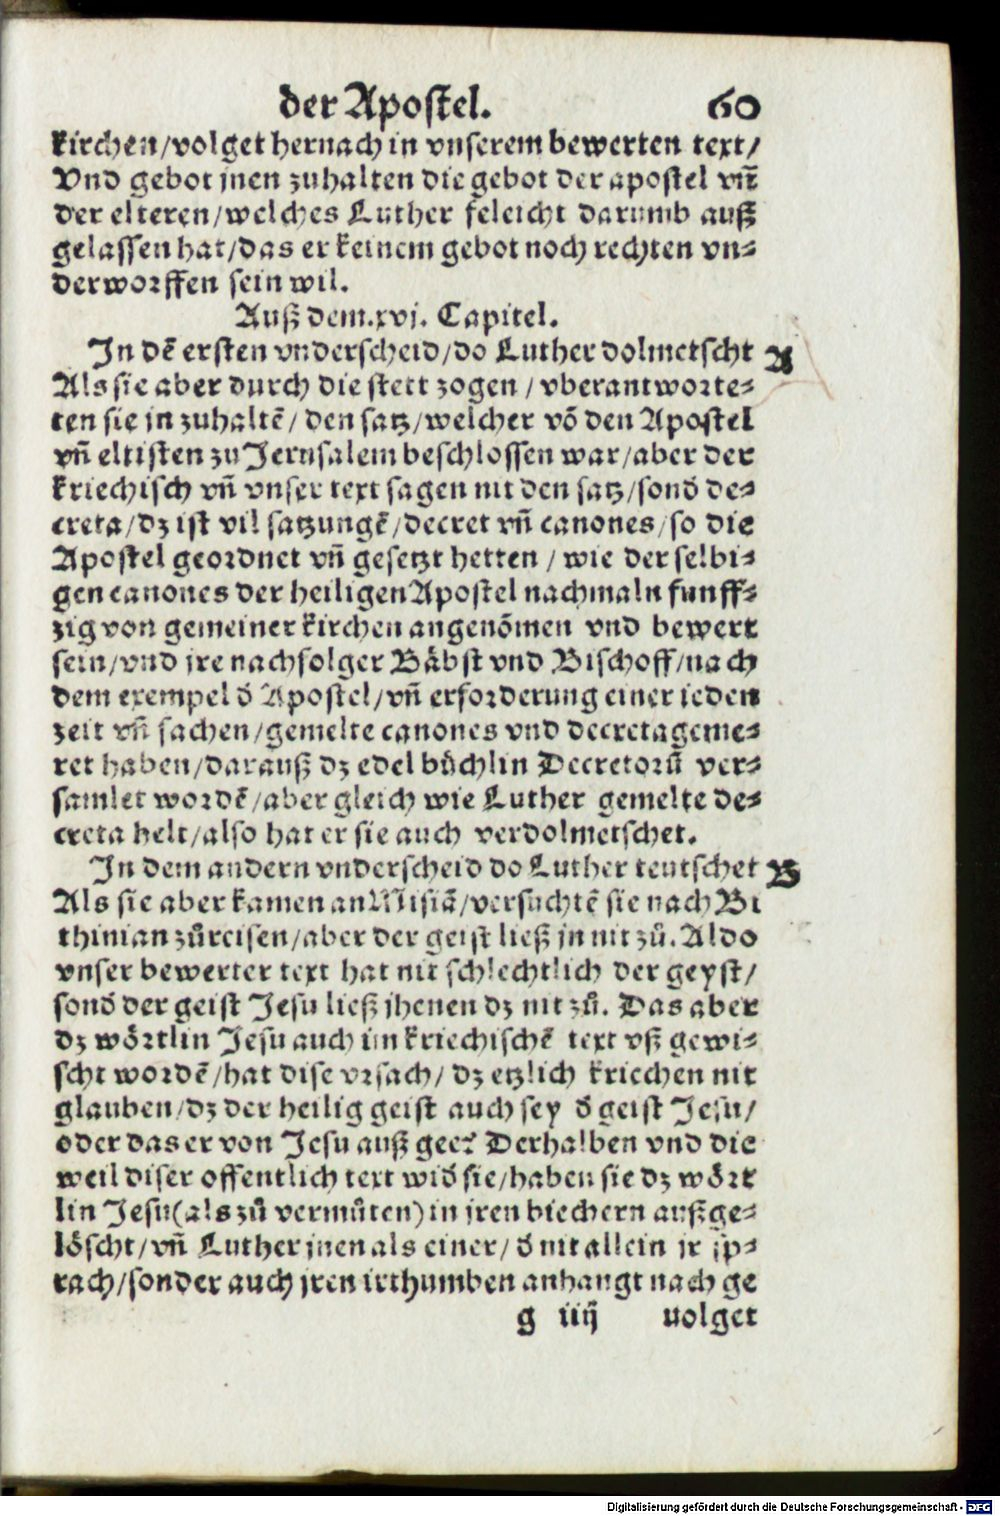 der Apostel. 60
kirchen/volget hernach in vnserem bewerten text/
Vnd gebot jnen zuhalten die gebot der apostel vñ
der elteren/welches Luther feleicht darumb auß
gelassen hat/das er keinem gebot noch rechten vn⸗
derworffen sein wil.
Auß dem.xvj. Capitel.
In dē ersten vnderscheid/do Luther dolmetscht A
Als sie aber durch die stett zogen / vberantworte⸗
ten sie jn zuhaltē/ den satz/welcher vō den Apostel
vñ eltisten zu Jerusalem beschlossen war/aber der
kriechisch vñ vnser text sagen nit den satz/sonď de⸗
creta/dz ist vil satzungē/decret vñ canones/so die
Apostel geordnet vñ gesetzt hetten / wie der selbi⸗
gen canones der heiligen Apostel nachmaln funff⸗
zig von gemeiner kirchen angenōmen vnd bewert
sein/vnd jre nachfolger Bäbst vnd Bischoff/nach
dem exempel ď Apostel/vñ erforderung einer ieden
zeit vñ sachen/gemelte canones vnd decreta geme⸗
ret haben/darauß dz edel bůchlin Decretorū ver⸗
samlet wordē/aber gleich wie Luther gemelte de⸗
creta helt/also hat er sie auch verdolmetschet.
In dem andern vnderscheid do Luther teutschet B
Als sie aber kamen an Misiā/versuchtē sie nach Bi
thinian zůreisen/aber der geist ließ jn nit zů. Aldo
vnser bewerter text hat nit schlechtlich der geyst/
sonď der geist Jesu ließ jhenen dz nit zů. Das aber
dz wörtlin Jesu auch im kriechischē text vß gewi⸗
scht wordē/hat dise vrsach/ dz etzlich kriechen nit
glauben/dz der heilig geist auch sey ď geist Jesu/
oder das er von Jesu auß gee? Derhalben vnd die
weil diser offentlich text wiď sie/haben sie dz wört
lin Jesu(als zů vermůten)in jren biechern außge⸗
löscht/vñ Luther jnen als einer/ď nit allein jr sp⸗
rach/sonder auch jren irthumben anhangt nach ge
g iiij volget
Digitalisierung gefördert durch die Deutsche Forschungsgemeinschaft - DFG